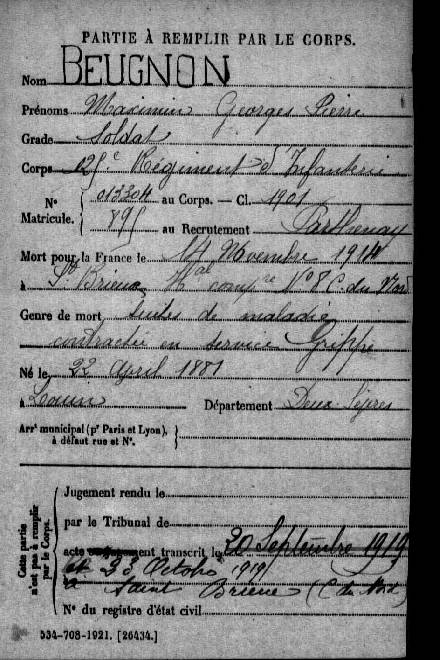 PARTIE À REMPLIR PAR LE CORPS.
Nom BEUGNON
Prénoms Maximin Georges Pierre
Grade Soldat
Corps 125e Régiment d'Infanterie
N° Matricule. { 013304 au Corps. — Cl. 1901
895 au Recrutement Parthenay
Mort pour la France le 14 Novembre 1914
à St Brieuc Hal comp re N° 8 C. du Nord
Genre de mort suites de maladie
contractée en service Grippe
Né le 22 April 1881
à Louin Département Deux-Sèvres
Arrt municipal (pr Paris et Lyon), à défaut rue et N°. }
Cette partie n'est pas à remplir par le Corps.
Jugement rendu le
par le Tribunal de
acte transcrit le 20 Septembre 1919
et 23 Octobre 1919
à Saint Brieuc (C. du Nord)
N° du registre d'état civil
534-708-1921. [26434.]